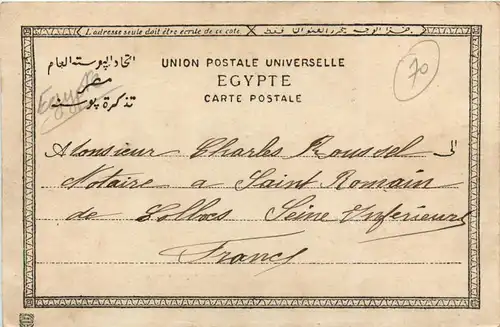 L'adresse seule doit être écrite de ce côté. هذا الوجه يحرر العنوان فقط
اتحاد البوسته العام
مصر
تذكرة بوسته
Egypte
UNION POSTALE UNIVERSELLE
EGYPTE
CARTE POSTALE
70
Monsieur Charles Roussel الى
Notaire a Saint Romain
de Colbosc Seine Inférieure
France